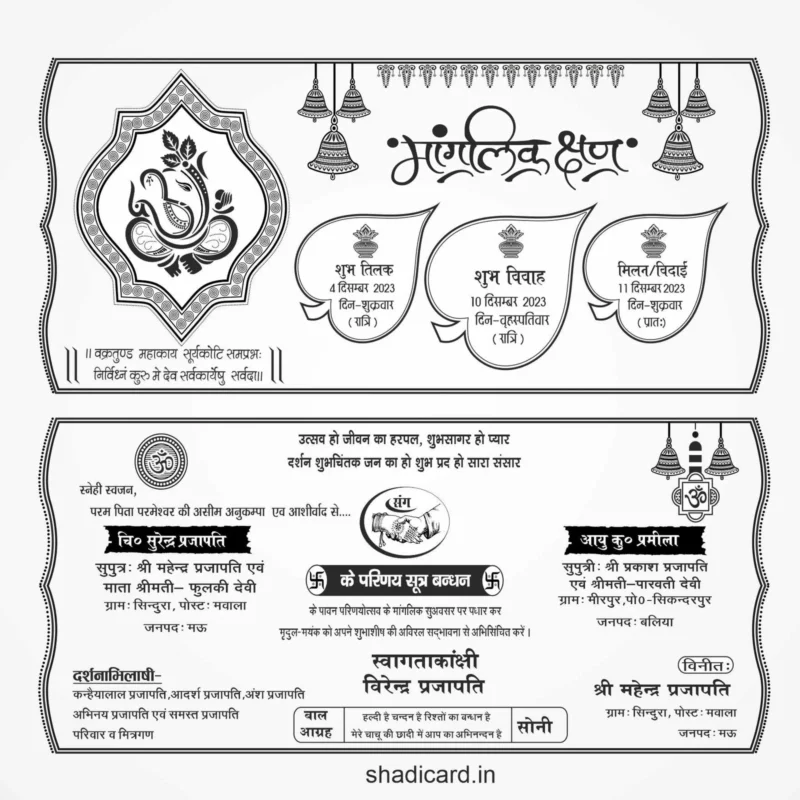 मांगलिक क्षण
शुभ तिलक
4 दिसम्बर 2023
दिन-शुक्रवार
(रात्रि)
शुभ विवाह
10 दिसम्बर 2023
दिन-वृहस्पतिवार
(रात्रि)
मिलन/विदाई
11 दिसम्बर 2023
दिन-शुक्रवार
(प्रातः)
।। वक्रतुण्ड महाकाय सूर्यकोटि समप्रभः
निर्विध्नं कुरु मे देव सर्वकार्येषु सर्वदा।।
ॐ
उत्सव हो जीवन का हरपल, शुभसागर हो प्यार
दर्शन शुभचिंतक जन का हो शुभ प्रद हो सारा संसार
ॐ
स्नेही स्वजन,
परम पिता परमेश्वर की असीम अनुकम्पा एव आशीर्वाद से....
चि० सुरेन्द्र प्रजापति
सुपुत्रः श्री महेन्द्र प्रजापति एवं
माता श्रीमती– फुलकी देवी
ग्रामः सिन्दुरा, पोस्टः मवाला
जनपदः मऊ
संग
आयु कु० प्रमीला
सुपुत्रीः श्री प्रकाश प्रजापति
एवं श्रीमती–पारवती देवी
ग्रामः मीरपुर,पो०-सिकन्दरपुर
जनपदः बलिया
卐 के परिणय सूत्र बन्धन 卐
के पावन परिणयोत्सव के मांगलिक सुअवसर पर पधार कर
मृदुल-मयंक को अपने शुभाशीष की अविरल सद्भावना से अभिसिंचित करें ।
स्वागताकांक्षी
विरेन्द्र प्रजापति
दर्शनाभिलाषी-
कन्हैयालाल प्रजापति,आदर्श प्रजापति,अंश प्रजापति
अभिनय प्रजापति एवं समस्त प्रजापति
परिवार व मित्रगण
बाल
आग्रह
हल्दी है चन्दन है रिश्तों का बन्धन है
मेरे चाचू की छादी में आप का अभिनन्दन है
सोनी
विनीतः
श्री महेन्द्र प्रजापति
ग्रामः सिन्दुरा, पोस्टः मवाला
जनपदः मऊ
shadicard.in